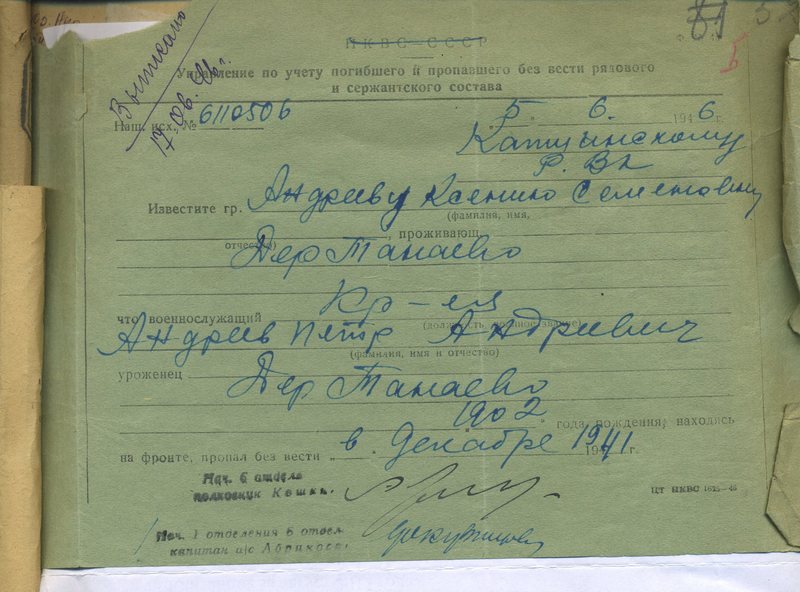 Выписано
17.06.46г.
81
5
НКВС-СССР
Управление по учету погибшего и пропавшего без вести рядового
и сержантского состава
Наш. исх. № 6110506
5. 6. 1946г.
Р. Вк
Известите гр. Андрееву Ксению Семеновну
(фамилия, имя,
отчество) , проживающ.
Дер Танаево
Кр-ец
что военнослужащий
(должность, военное звание)
Андреев Петр Андреевич
(фамилия, имя и отчество)
уроженец
Дер Танаево
1902 года рождения, находясь
на фронте, пропал без вести в Декабре 1941г.
Нач. 6 отдела
полковник
ЦТ НКВС
Нач. 1 отделения 6 отдел.
капитан а/с Абрикосов